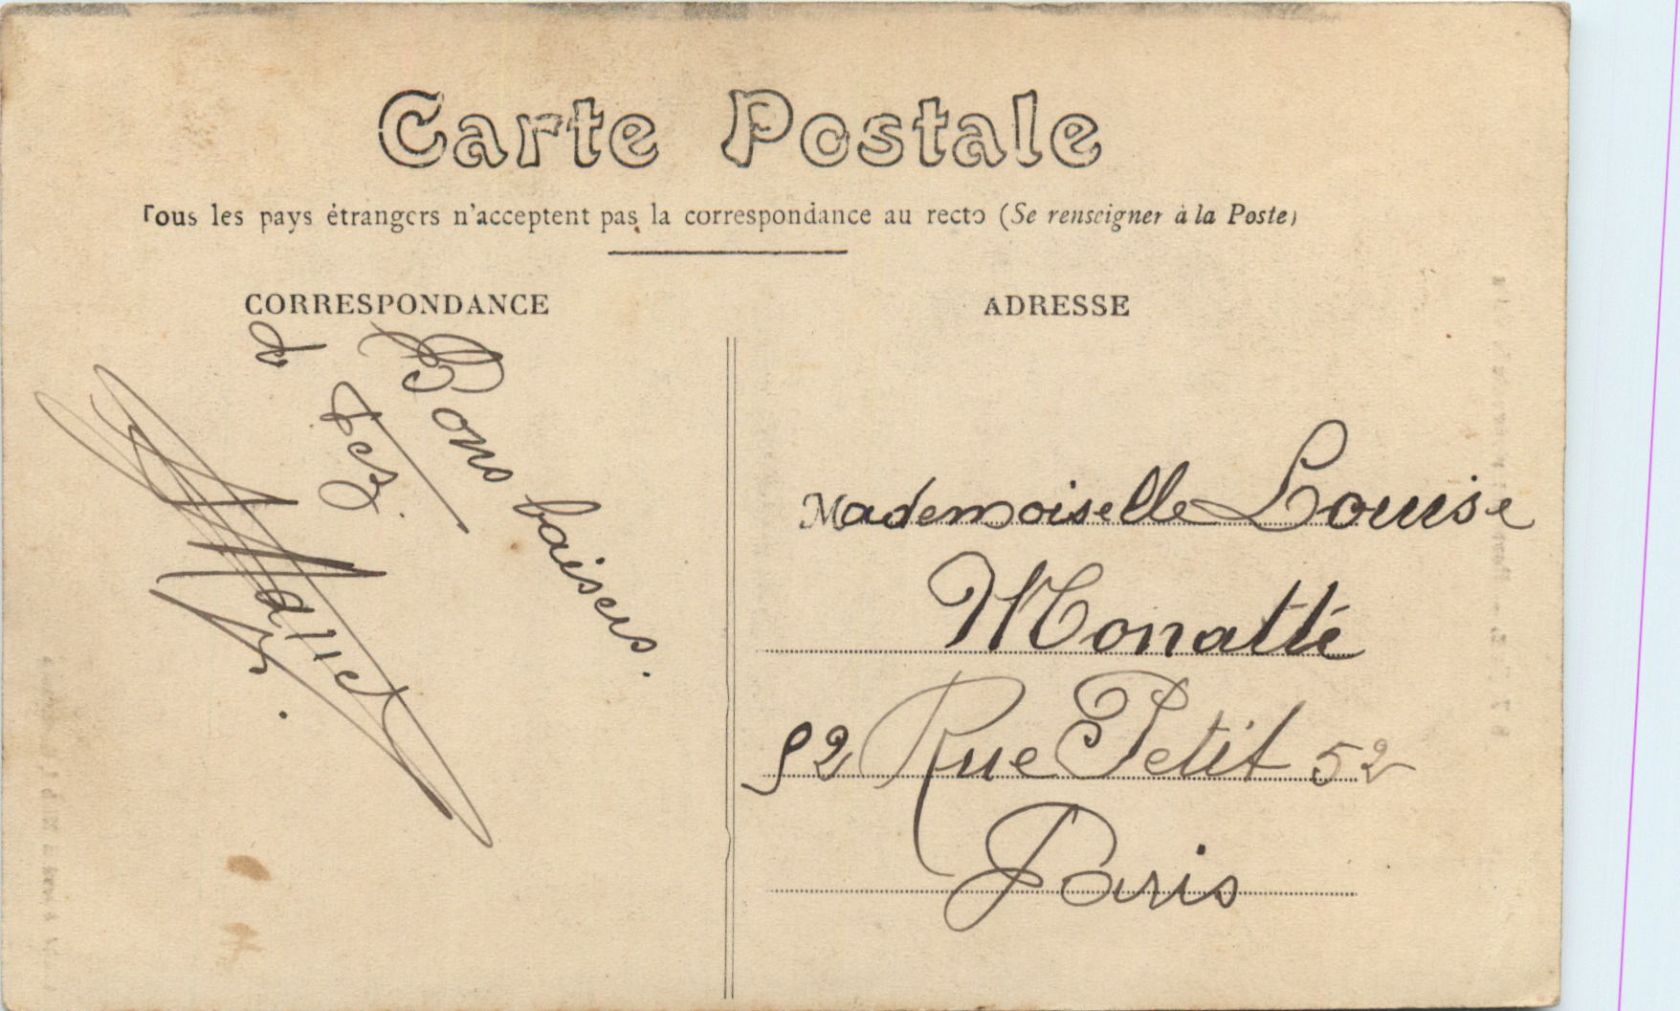 Carte Postale
Tous les pays étrangers n'acceptent pas la correspondance au recto (Se renseigner à la Poste)
CORRESPONDANCE
ADRESSE
Bons baisers.
de
Mademoiselle Louise
Monatté
52 Rue Petit 52
Paris